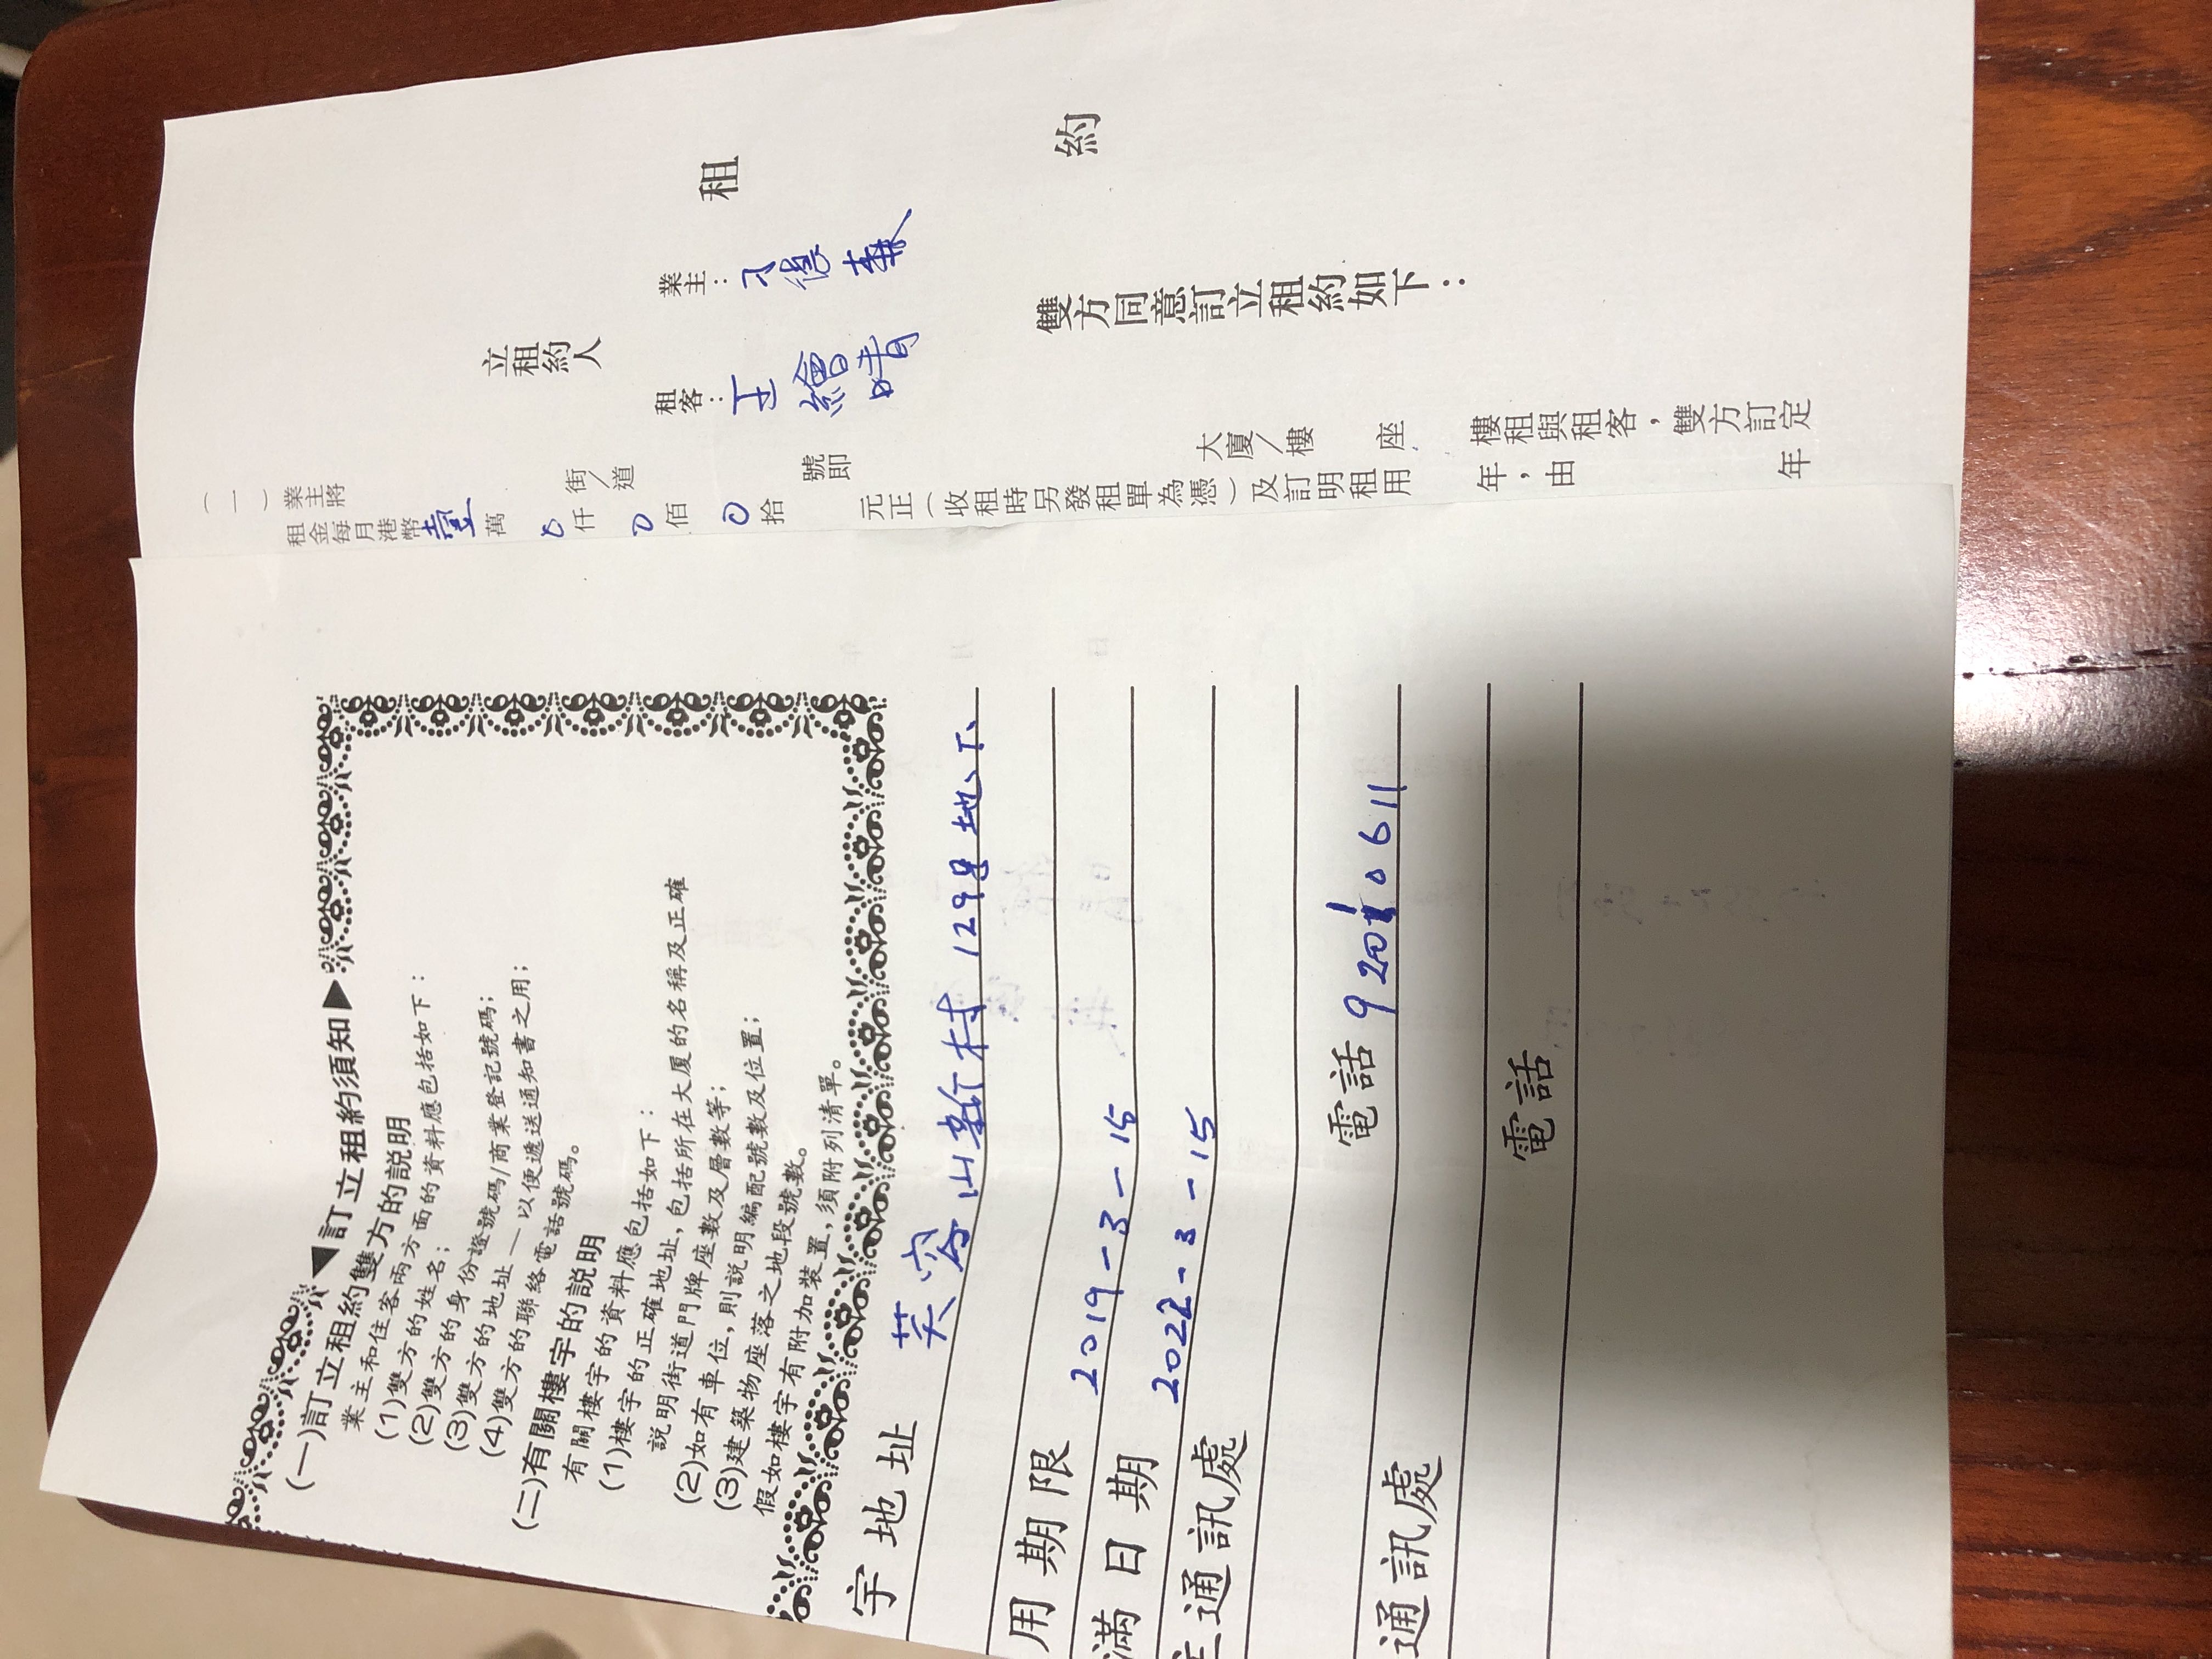 ◀訂立租約須知▶
(一)訂立租約雙方的説明
業主和住客兩方面的資料應包括如下：
(1)雙方的姓名；
(2)雙方的身份證號碼/商業登記號碼；
(3)雙方的地址——以便遞送通知書之用；
(4)雙方的聯絡電話號碼。
(二)有關樓宇的説明
有關樓宇的資料應包括如下：
(1)樓宇的正確地址，包括所在大厦的名稱及正確
説明街道門牌座數及層數等；
(2)如有車位，則説明編配號數及位置；
(3)建築物座落之地段號數。
假如樓宇有附加裝置，須附列清單。
宇地址 芙容山新村129號地下
用期限 2019-3-15
滿日期 2022-3-15
主通訊處
電話 92010611
通訊處
電話
租約
立租約人
業主：
租客：王繪晴
雙方同意訂立租約如下：
(一)業主將 街/道 號即 大廈/樓 座 樓租與租客，雙方訂定
租金每月港幣壹萬0仟0佰0拾 元正(收租時另發租單為憑)及訂明租用 年，由 年